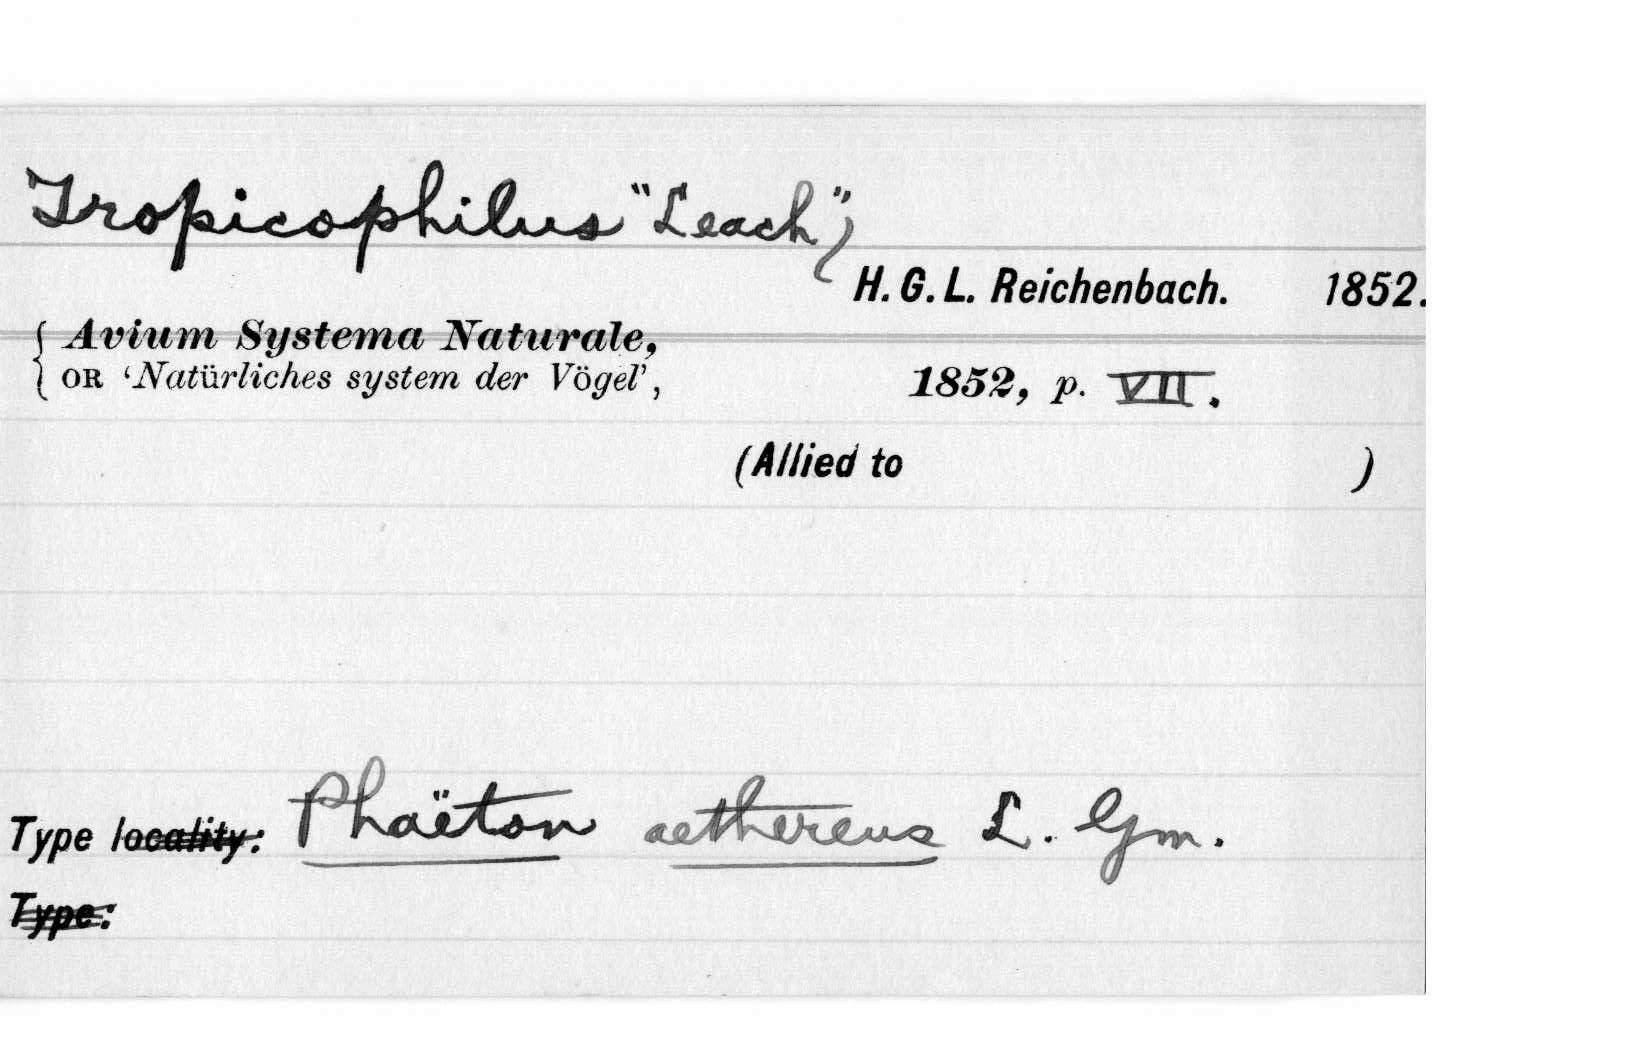 Tropicophilus "Leach",
H. G. L. Reichenbach. 1852.
{ Avium Systema Naturale,
{ OR 'Natürliches system der Vögel', 1852, p. VII.
(Allied to )
Type locality: Phaëton aethereus L. Gm.
Type: